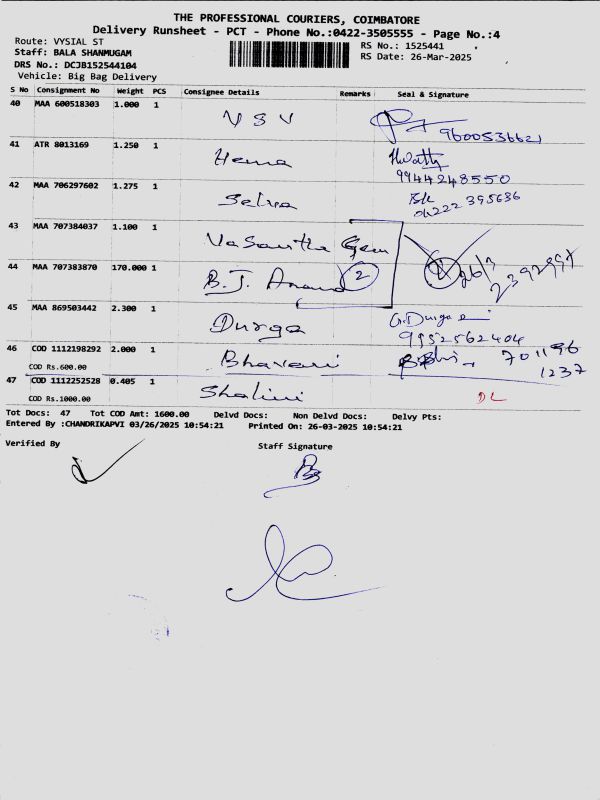 THE PROFESSIONAL COURIERS, COIMBATORE
Delivery Runsheet - PCT - Phone No.:0422-3505555 - Page No.:4
Route: VYSIAL ST
Staff: BALA SHANMUGAM
DRS No.: DCJB152544104
Vehicle: Big Bag Delivery
RS No.: 1525441
RS Date: 26-Mar-2025
S No Consignment No Weight PCS Consignee Details Remarks Seal & Signature
40 MAA 600518303 1.000 1 V S V 9600536621
41 ATR 8013169 1.250 1 Hema
9944248550
42 MAA 706297602 1.275 1 Selva
04222 395636
43 MAA 707384037 1.100 1 Vasantha Gem
44 MAA 707383870 170.000 1 B.J. Anand 2 26/3
45 MAA 869503442 2.300 1 Durga G.Durga
9952562404
46 COD 1112198292 2.000 1 Bhavani 701196
COD Rs.600.00 1237
47 COD 1112252528 0.405 1 Shalini DL
COD Rs.1000.00
Tot Docs: 47 Tot COD Amt: 1600.00 Delvd Docs: Non Delvd Docs: Delvy Pts:
Entered By :CHANDRIKAPVI 03/26/2025 10:54:21 Printed On: 26-03-2025 10:54:21
Verified By Staff Signature